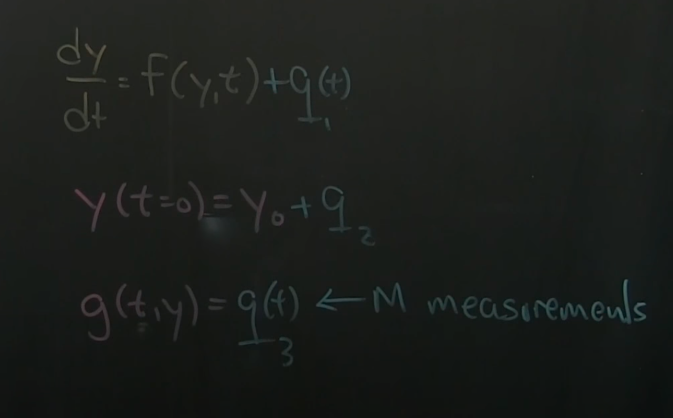 dy/dt = f(y,t) + q₁(t)
y(t=0) = y₀ + q₂
g(t,y) = q₃(t) ← M measurements